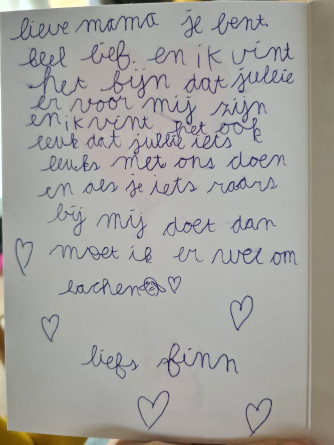 lieve mama je bent
heel lief. en ik vint
het fijn dat jullie
er voor mij zijn
en ik vint het ook
leuk dat jullie iets
leuks met ons doen
en als je iets raars
bij mij doet dan
moet ik er wel om
lachen
liefs finn